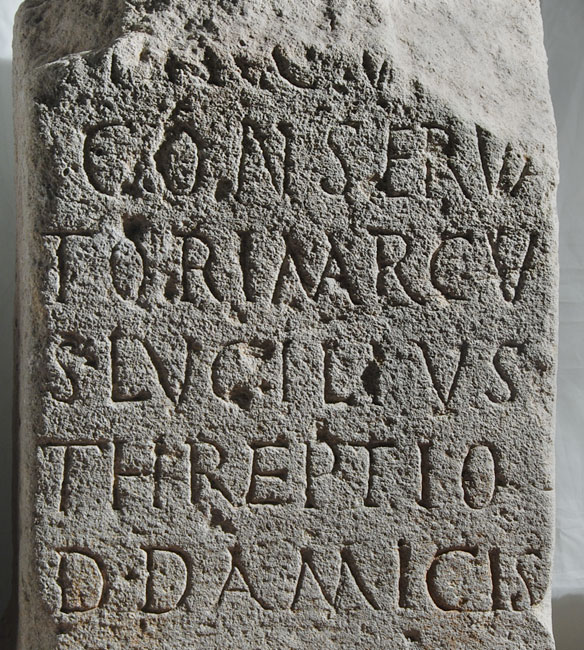 CONSERVA
TORI MARCV
S LVCILIVS
THREPTIO
D·D AMICIS